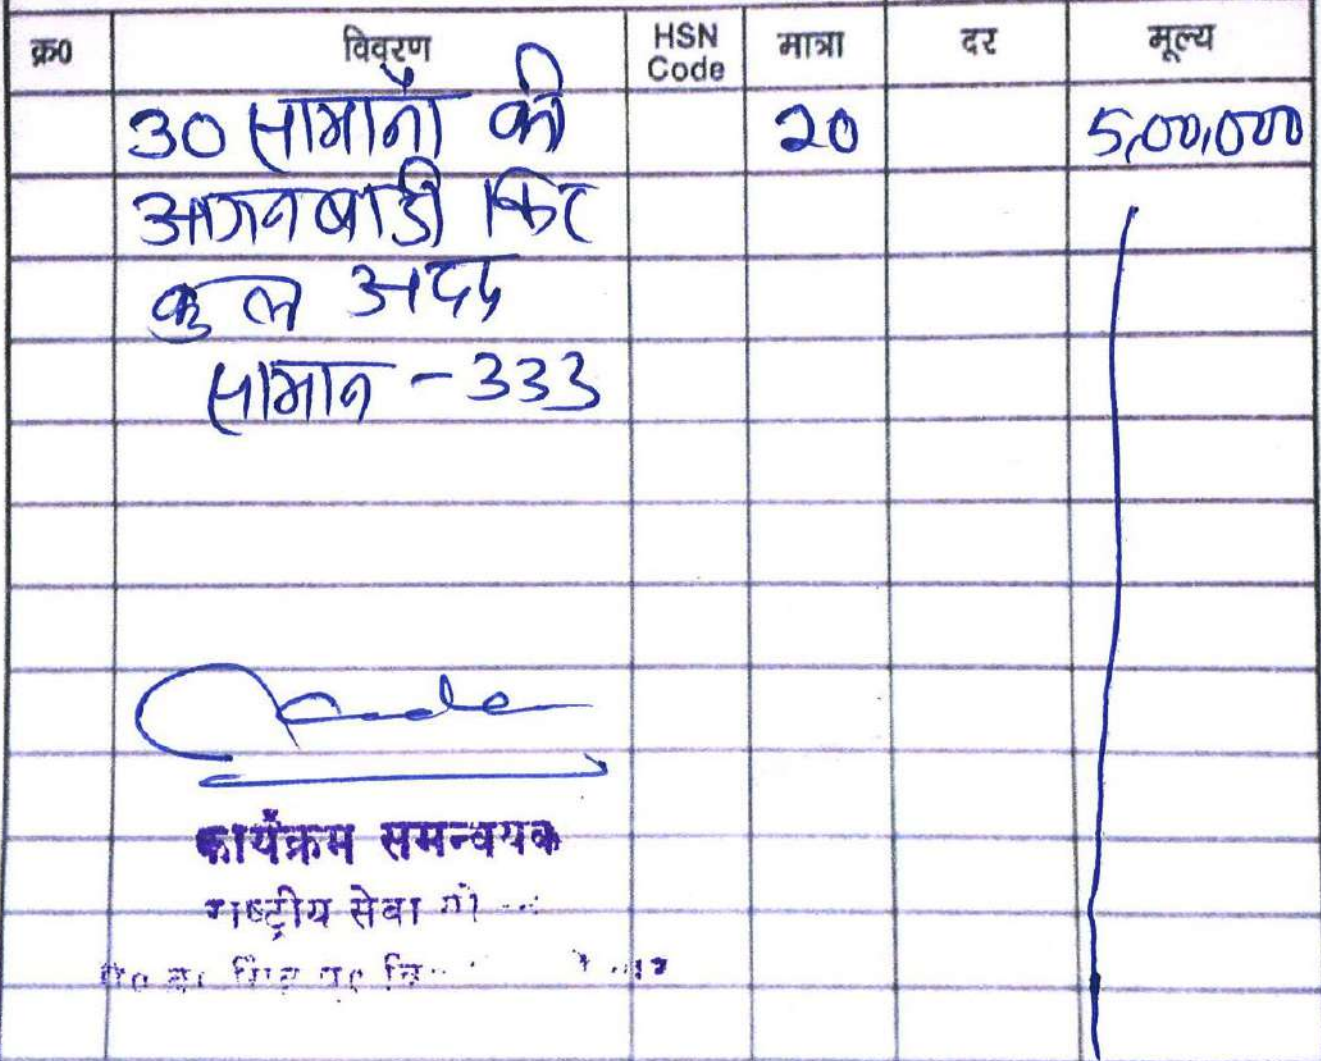 क्र0 विवरण HSN Code मात्रा दर मूल्य
30 सामानों की 20 5,00,000
आगनबाडी किट
कुल अदद
सामान - 333
कार्यक्रम समन्वयक
राष्ट्रीय सेवा